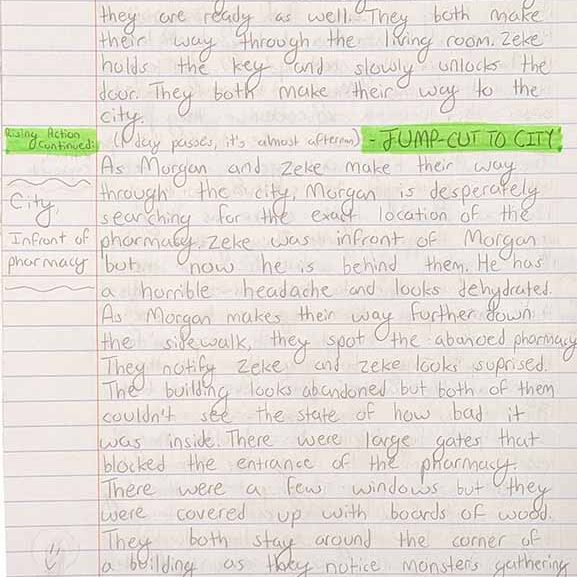 they are ready as well. They both make
their way through the living room. Zeke
holds the key and slowly unlocks the
door. They both make their way to the
city.
Rising Action
Continued: (1 day passes, it's almost afternoon) - JUMP-CUT TO CITY
As Morgan and Zeke make their way
through the city, Morgan is desperately
City,
searching for the exact location of the
Infront of
pharmacy
pharmacy. Zeke was infront of Morgan
but now he is behind them. He has
a horrible headache and looks dehydrated.
As Morgan makes their way further down
the sidewalk, they spot the abanoed pharmacy
They notify Zeke and Zeke looks suprised.
The building looks abandoned but both of them
couldn't see the state of how bad it
was inside. There were large gates that
blocked the entrance of the pharmacy.
There were a few windows but they
were covered up with boards of wood.
They both stay around the corner of
a building as they notice monsters gathering